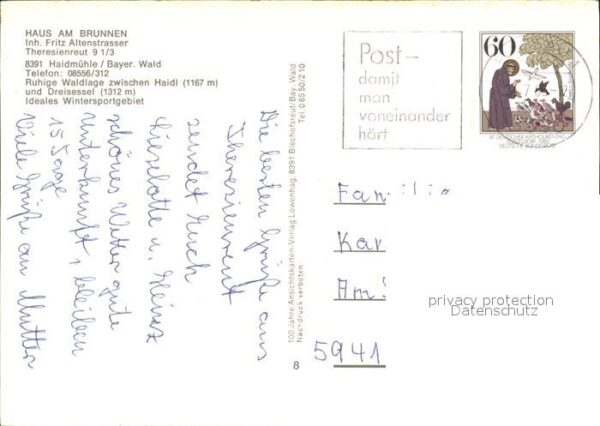 HAUS AM BRUNNEN
Inh. Fritz Altenstrasser
Theresienreut 9 1/3
8391 Haidmühle / Bayer. Wald
Telefon: 08556/312
Ruhige Waldlage zwischen Haidl (1167 m)
und Dreisessel (1312 m)
Ideales Wintersportgebiet
Die besten Grüße aus
Theresienreut
sendet Euch
Lieselotte u. Heinz
schönes Wetter gute
Unterkunft, bleiben
15 Tage
Viele Grüße an Mutter
100 Jahre Ansichtskarten-Verlag Löwenhag, 8391 Bischofsreut/Bay. Wald
Nachdruck verboten Tel. 0 85 50/2 10
8
Post –
damit
man
voneinander
hört
60
DEUTSCHE BUNDESPOST
Fam
Kar
Am
5941
privacy protection
Datenschutz